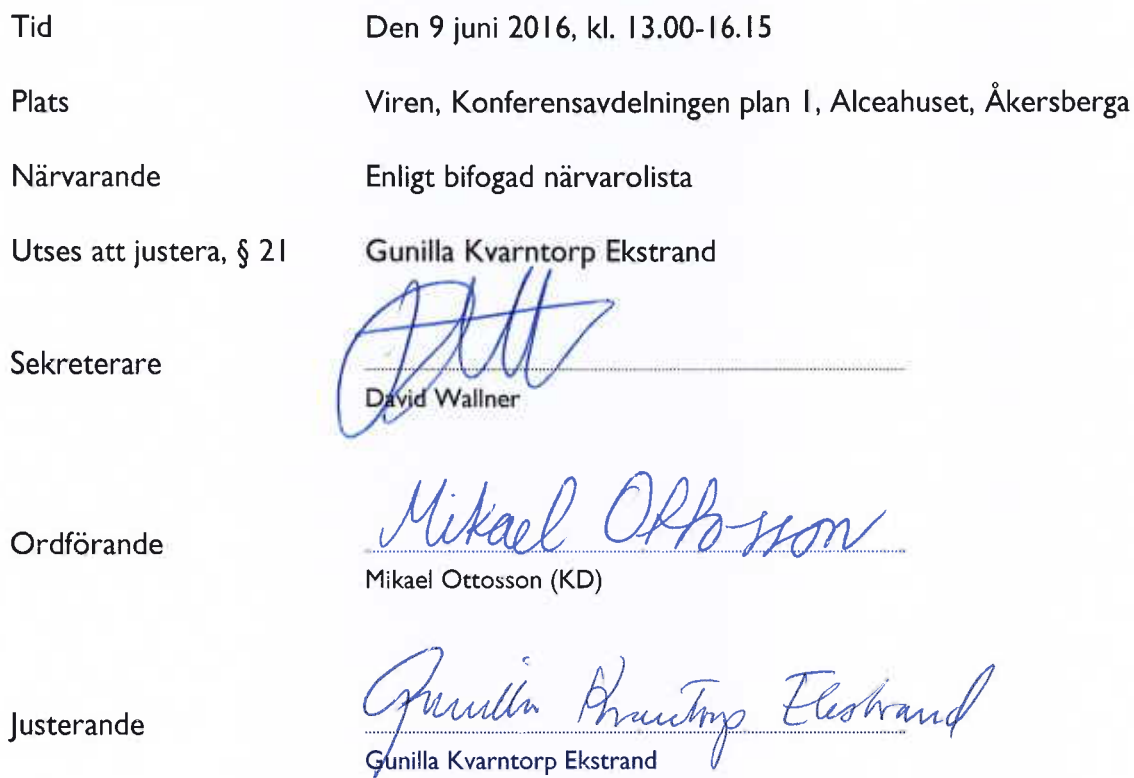 Tid Den 9 juni 2016, kl. 13.00-16.15
Plats Viren, Konferensavdelningen plan 1, Alceahuset, Åkersberga
Närvarande Enligt bifogad närvarolista
Utses att justera, § 21 Gunilla Kvarntorp Ekstrand
Sekreterare
David Wallner
Mikael Ottosson
Ordförande
Mikael Ottosson (KD)
Gunilla Kvarntorp Ekstrand
Justerande
Gunilla Kvarntorp Ekstrand